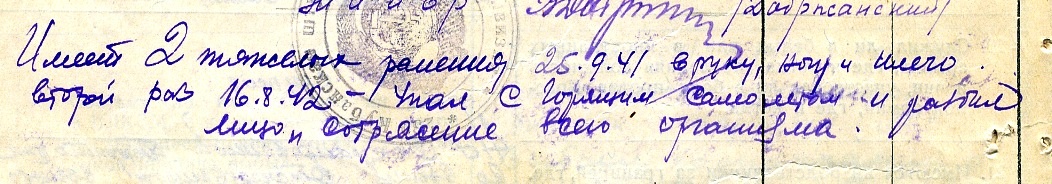 майор (Добржанский)
Имеет 2 тяжелых ранения 25.9.41 в руку, ногу и плечо.
второй раз 16.8.42 – упал с горящим самолетом и разбил
лицо, и сотрясение всего организма.